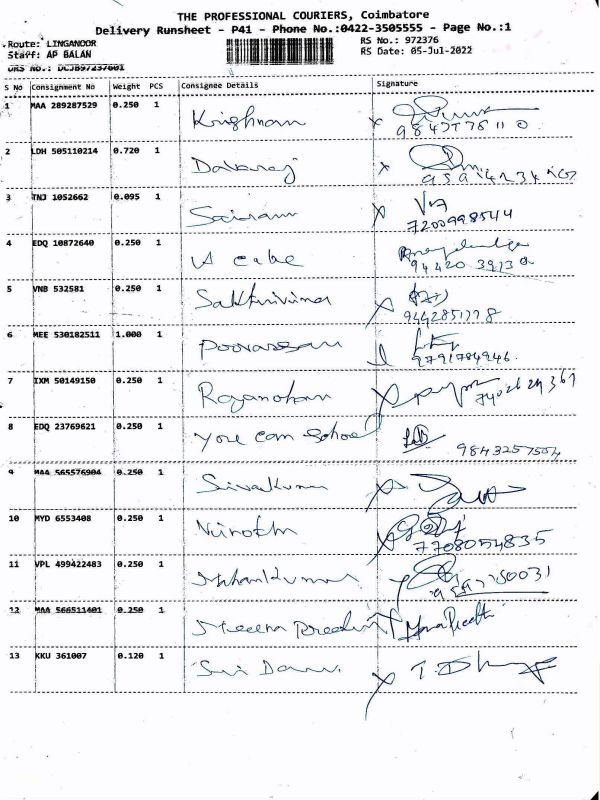 THE PROFESSIONAL COURIERS, Coimbatore
Delivery Runsheet - P41 - Phone No.:0422-3505555 - Page No.:1
Route: LINGANOOR RS No.: 972376
Staff: AP BALAN RS Date: 05-Jul-2022
DRS No.: DCJB97237601
S No Consignment No Weight PCS Consignee Details Signature
1 MAA 289287529 0.250 1 Krishnan
2 LDH 505110214 0.720 1
3 TNJ 1052662 0.095 1 Sairam
7200998544
4 EDQ 10872640 0.250 1 cake
94420 39130
5 VNB 532581 0.250 1
9442851778
6 MEE 530182511 1.000 1
9791784946.
7 IXM 50149150 0.250 1 Rajamohan
8 EDQ 23769621 0.250 1 you can school
9843257504
9 MAA 565576904 0.250 1 Sivakumar
10 MYD 6553408 0.250 1
7708054835
11 VPL 499422483 0.250 1 Mohankumar
12 MAA 566511401 0.250 1 Meena
13 KKU 361007 0.120 1 Sri